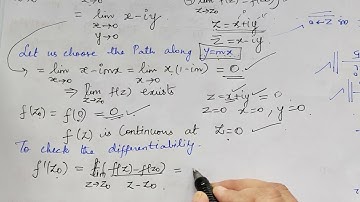 = lim x - iy
x→0
y→0
z = x+iy
z̄ = x-iy
Let us choose the Path along y=mx
= lim x - imx = lim x (1-im) = 0
x→0 x→0
⇒ lim f(z) exists
z→z₀
f(z₀) = f(0) = 0
z = x+iy
z=0 x=0, y=0
f(z) is Continuous at z=0
To check the differentiability.
f'(z₀) = lim f(z) - f(z₀) =
z→z₀ z - z₀